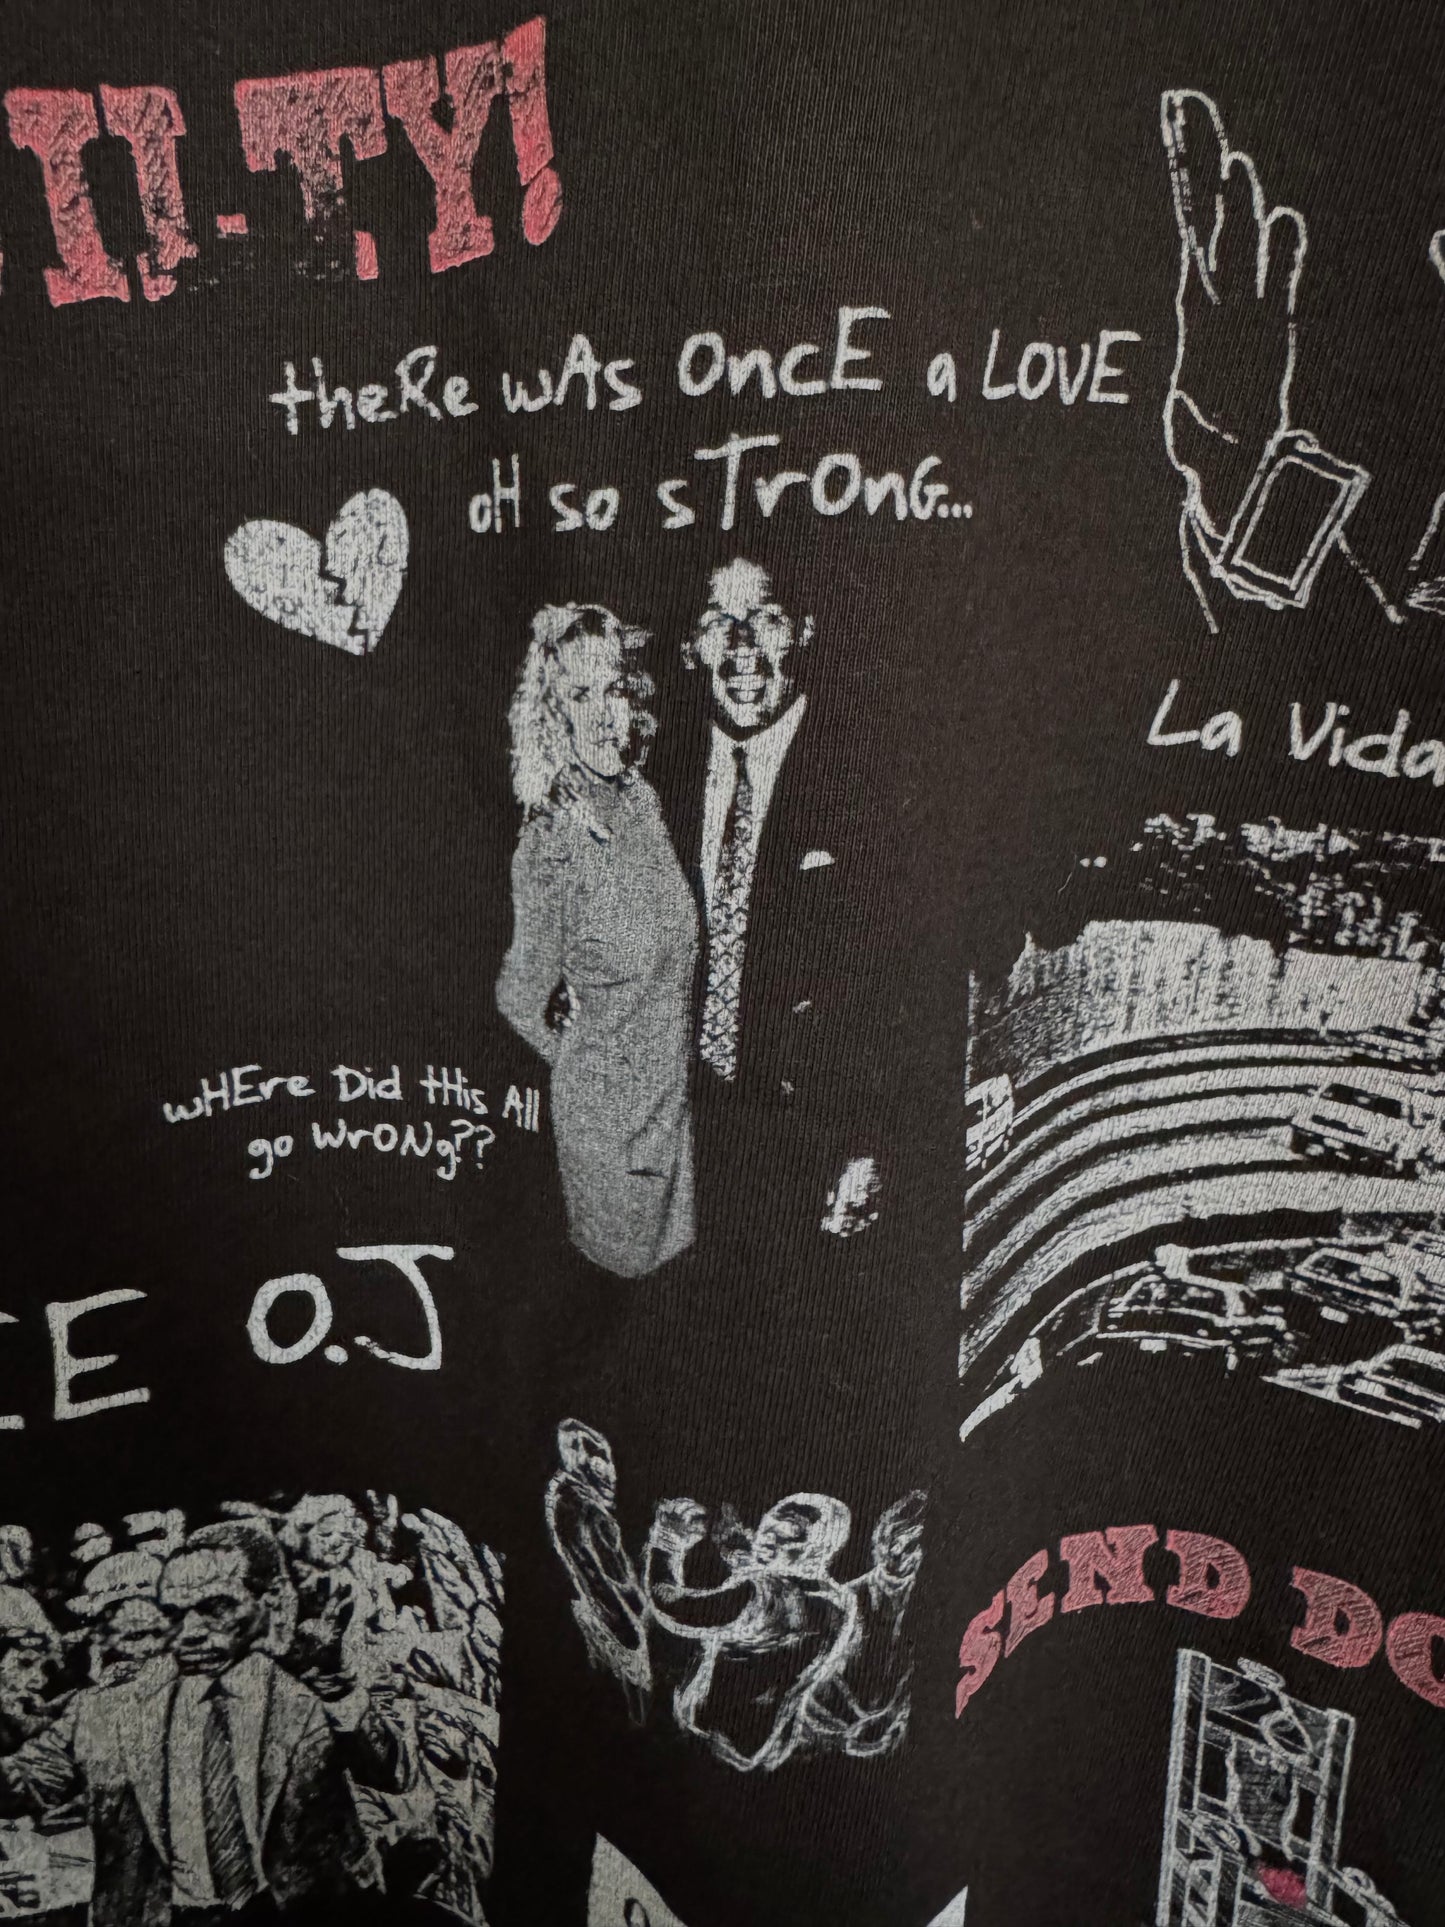 ILTY!
theRe wAs OncE a LOVE
oH so sTrOnG...
La Vida
wHEre Did tHis All
go WrONg??
O.J
SEND DO